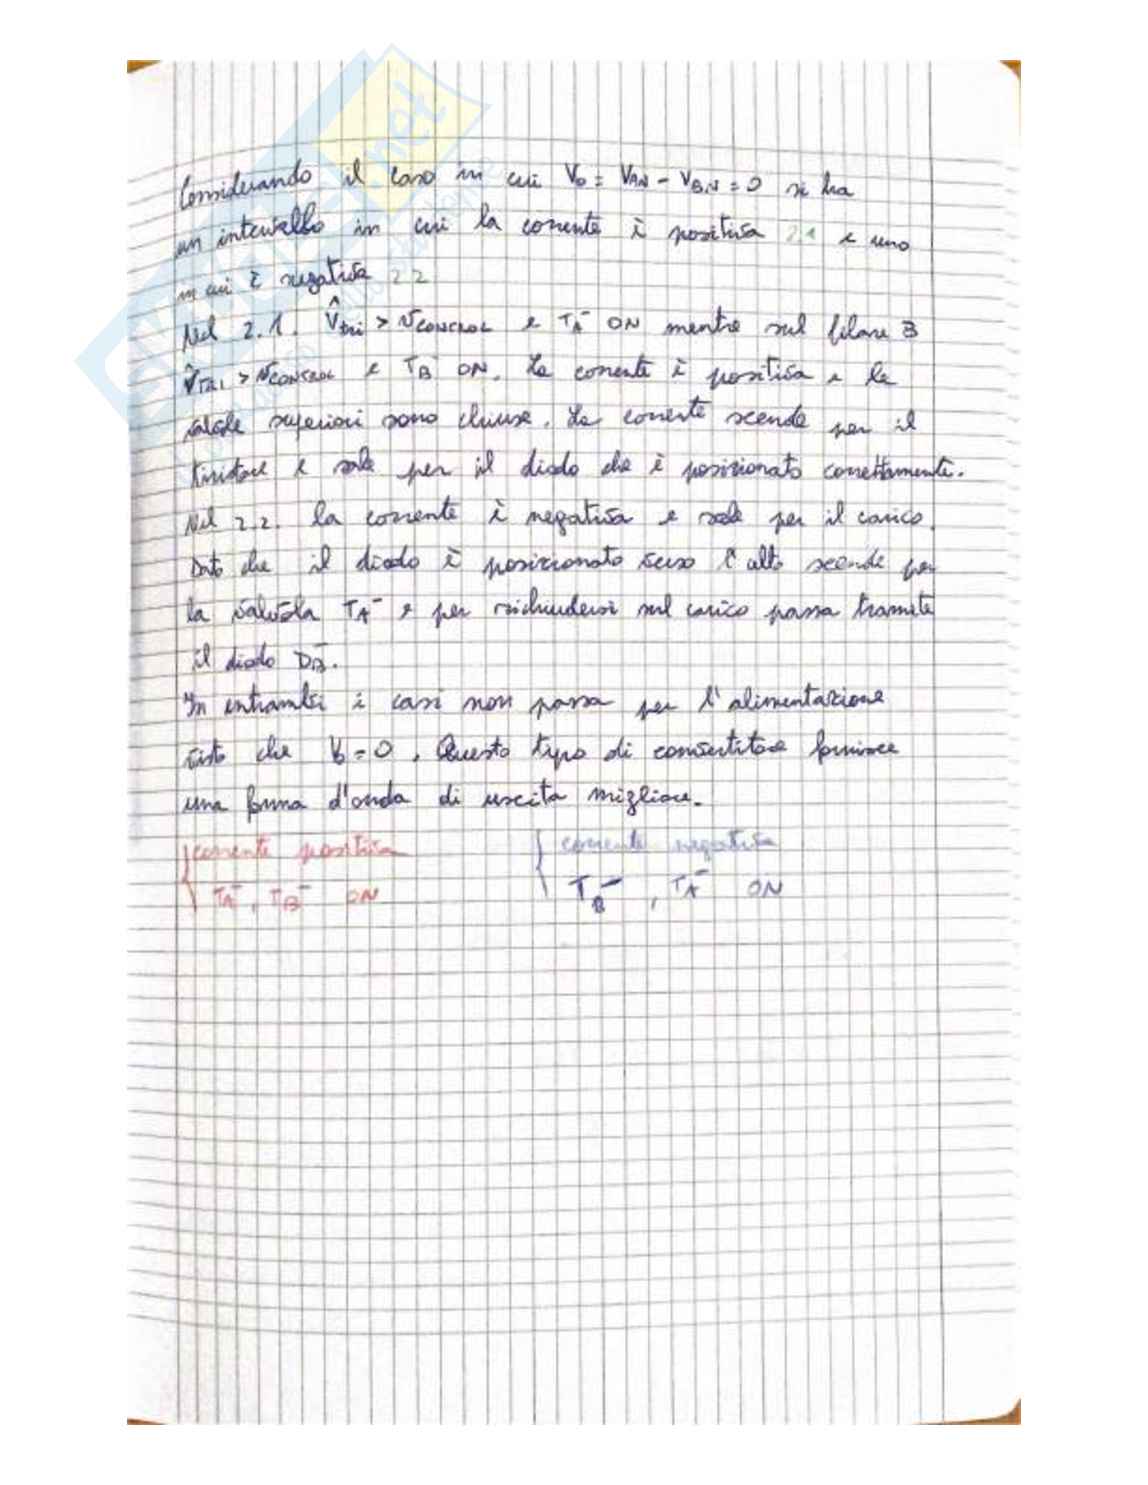 Considerando il caso in cui V₀ = V_AN - V_BN = 0 si ha
un intervallo in cui la corrente è positiva 2.1 e uno
in cui è negativa 2.2
Nel 2.1. V̂tri > v_CONTROL e T_A⁻ ON mentre sul filare B
V̂_TRI > v_CONTROL e T_B⁻ ON. La corrente è positiva e le
valvole superiori sono chiuse. La corrente scende per il
tiristore e sale per il diodo che è posizionato correttamente.
Nel 2.2. la corrente è negativa e sale per il carico.
Dato che il diodo è posizionato verso l'alto scende per
la valvola T_A⁻ e per richiudersi sul carico passa tramite
il diodo D_B⁻.
In entrambi i casi non passa per l'alimentazione
visto che V₀ = 0. Questo tipo di convertitore fornisce
una forma d'onda di uscita migliore.
corrente positiva
T_A⁻, T_B⁻ ON
corrente negativa
T_B⁻, T_A⁻ ON